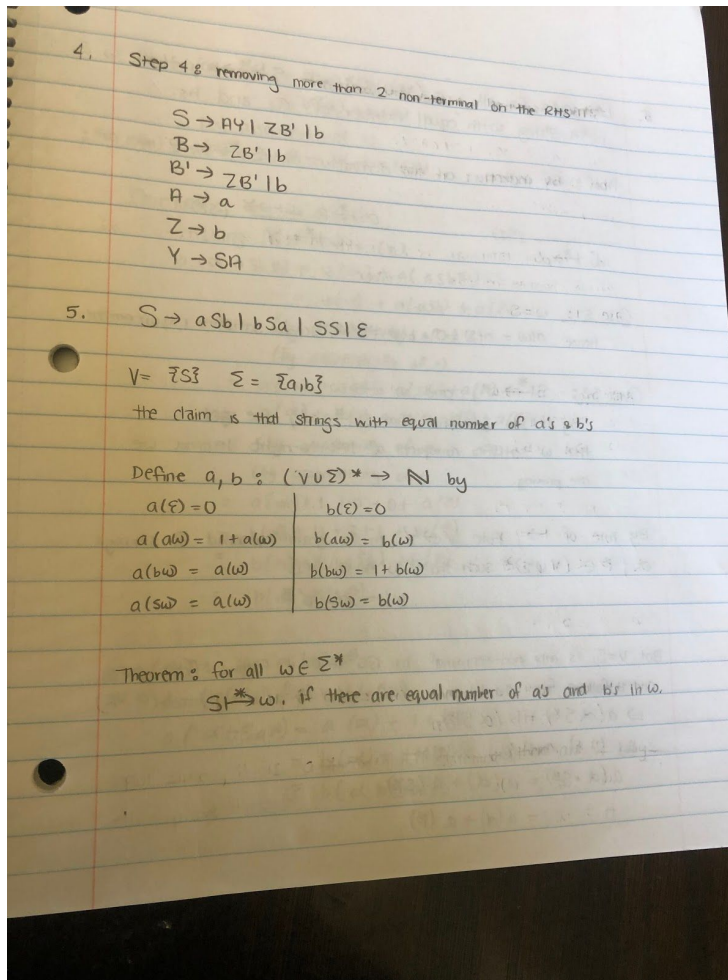 4. Step 4: removing more than 2 non-terminal on the RHS
S → AY | ZB' | b
B → ZB' | b
B' → ZB' | b
A → a
Z → b
Y → SA
5. S → aSb | bSa | SS | ε
V = {S} Σ = {a,b}
the claim is that strings with equal number of a's & b's
Define a, b : (V∪Σ)* → ℕ by
a(ε) = 0 b(ε) = 0
a(aω) = 1 + a(ω) b(aω) = b(ω)
a(bω) = a(ω) b(bω) = 1 + b(ω)
a(Sω) = a(ω) b(Sω) = b(ω)
Theorem: for all ω ∈ Σ*
S ⊢*→ ω, if there are equal number of a's and b's in ω.